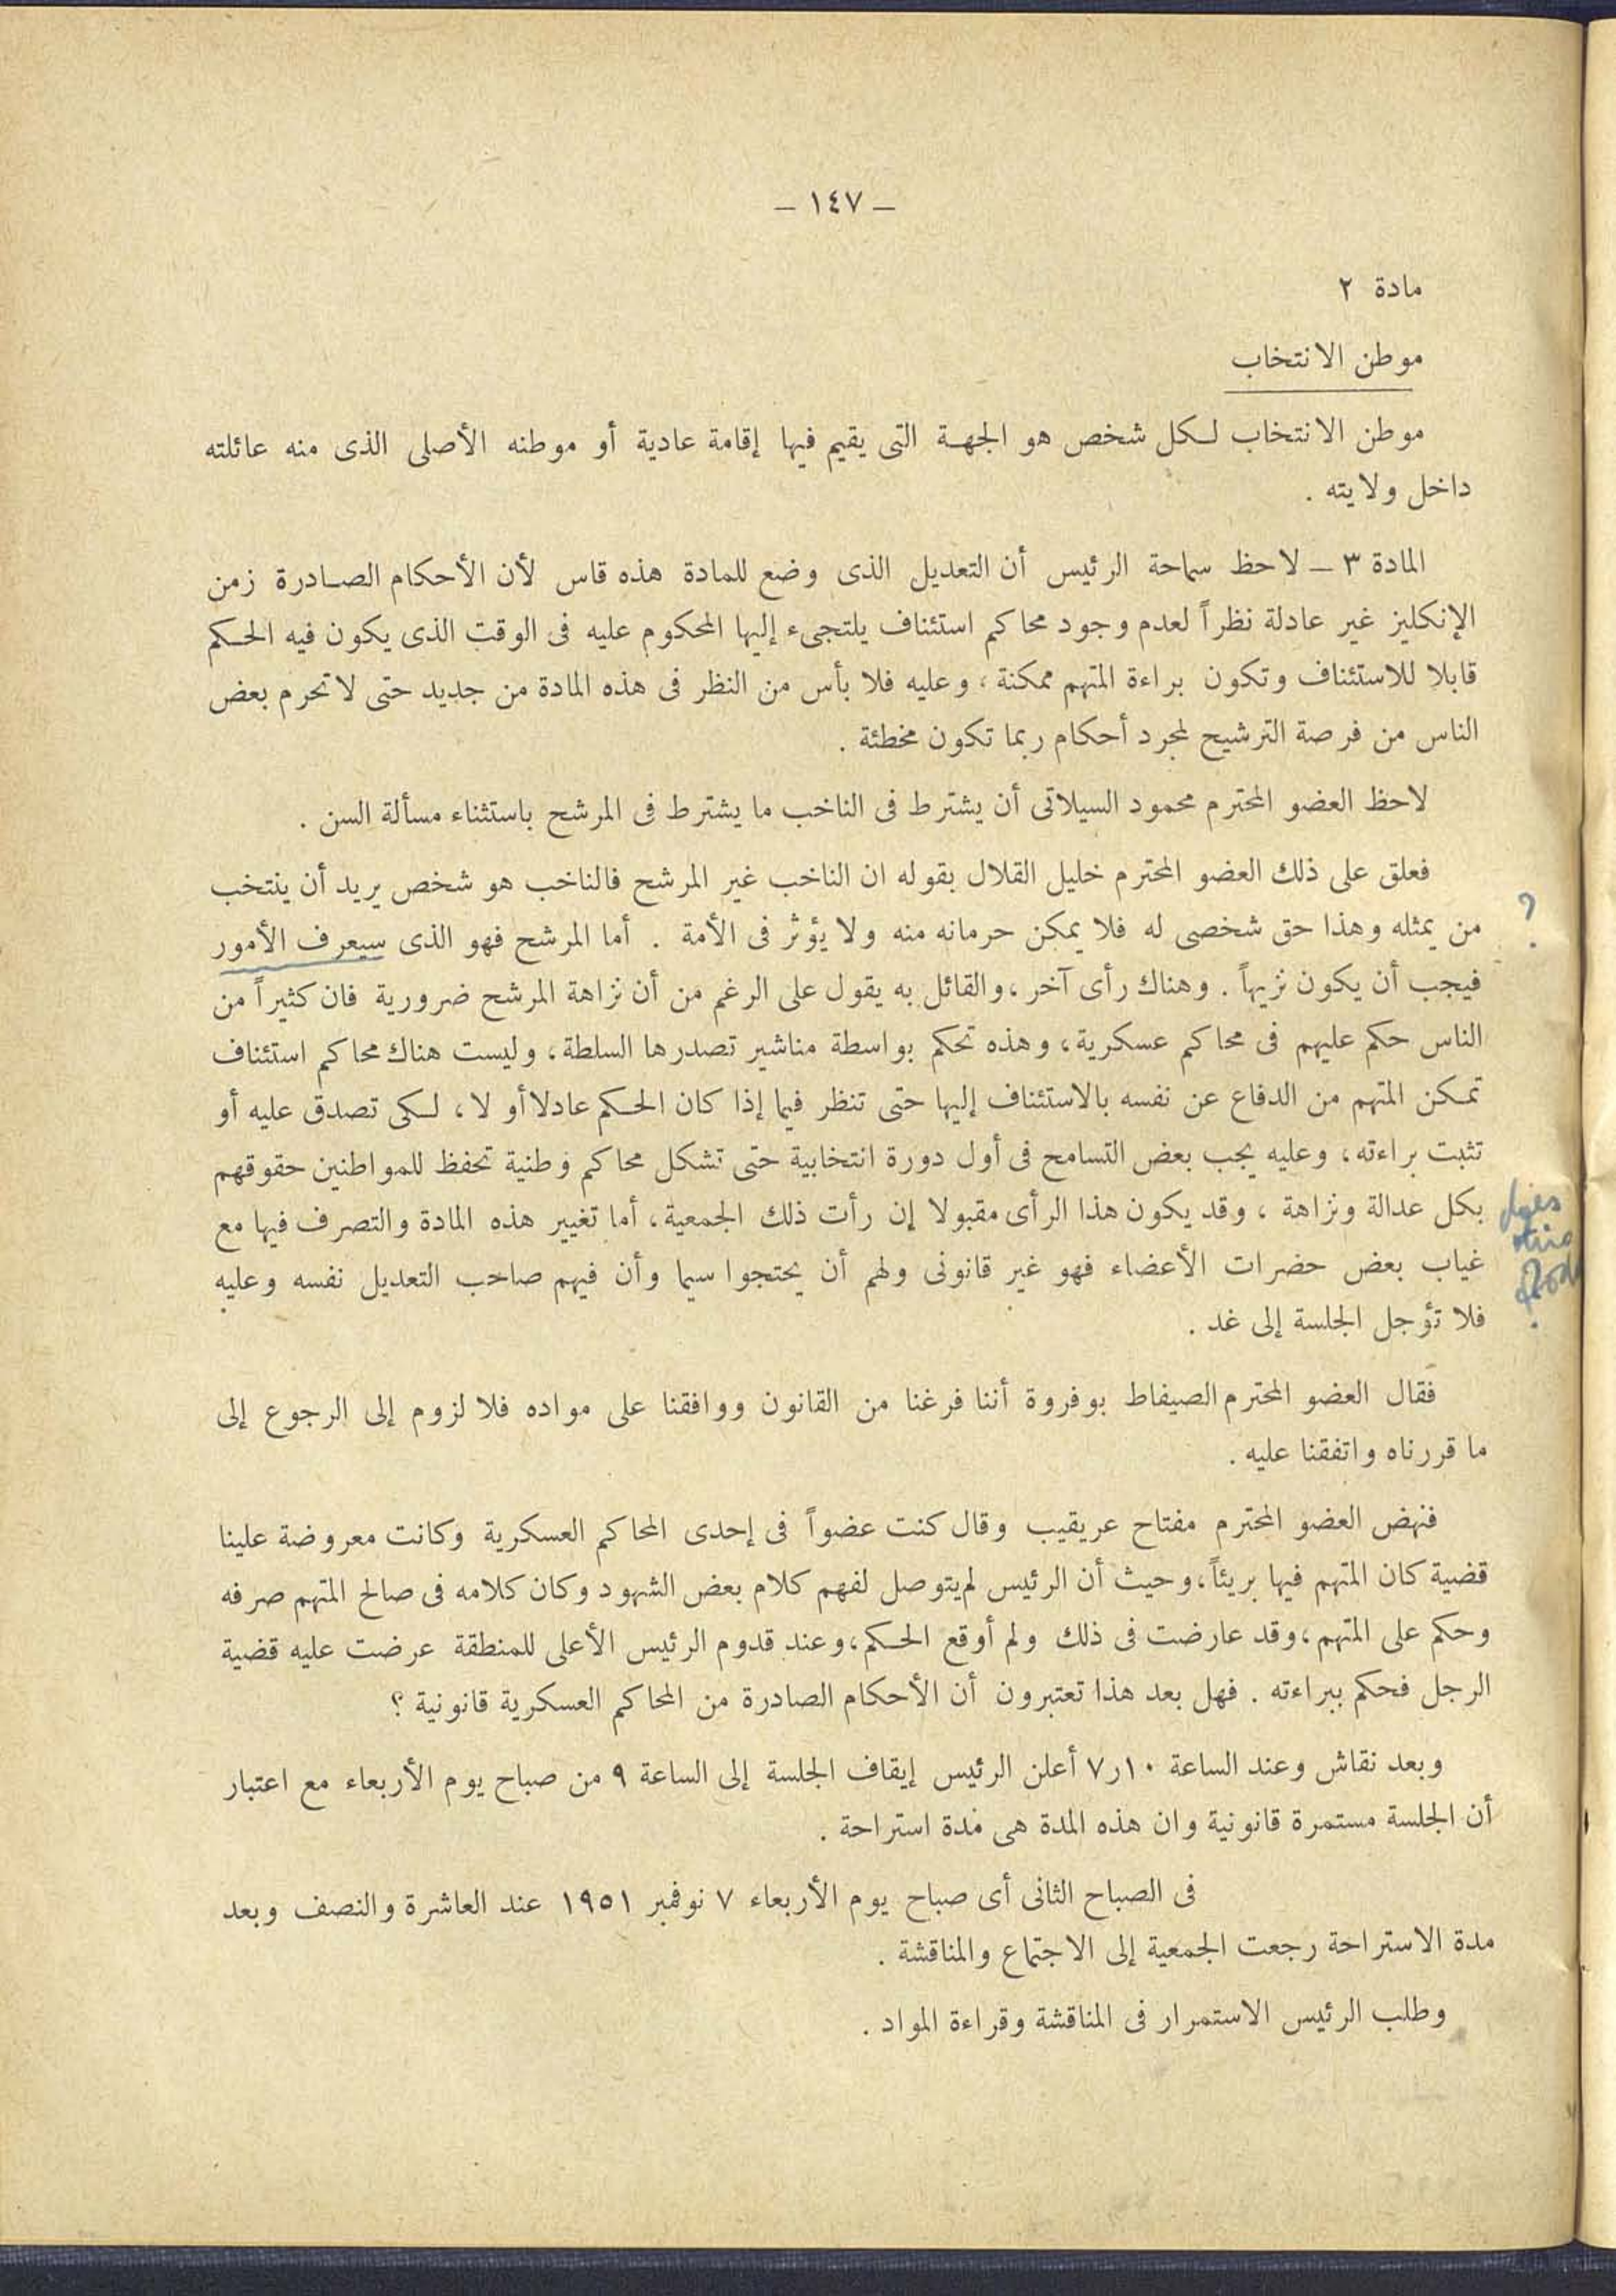 — ١٤٧ —
مادة ٢
موطن الانتخاب
موطن الانتخاب لكل شخص هو الجهة التى يقيم فيها إقامة عادية أو موطنه الأصلى الذى منه عائلته
داخل ولايته .
المادة ٣ — لاحظ سماحة الرئيس أن التعديل الذى وضع للمادة هذه قاس لأن الأحكام الصادرة زمن
الإنكليز غير عادلة نظراً لعدم وجود محاكم استئناف يلتجىء إليها المحكوم عليه فى الوقت الذى يكون فيه الحكم
قابلا للاستئناف وتكون براءة المتهم ممكنة ، وعليه فلا بأس من النظر فى هذه المادة من جديد حتى لا تحرم بعض
الناس من فرصة الترشيح لمجرد أحكام ربما تكون مخطئة .
لاحظ العضو المحترم محمود السيلاتى أن يشترط فى الناخب ما يشترط فى المرشح باستثناء مسألة السن .
فعلق على ذلك العضو المحترم خليل القلال بقوله ان الناخب غير المرشح فالناخب هو شخص يريد أن ينتخب
من يمثله وهذا حق شخصى له فلا يمكن حرمانه منه ولا يؤثر فى الأمة . أما المرشح فهو الذى سيعرف الأمور
؟
فيجب أن يكون نزيهاً . وهناك رأى آخر ، والقائل به يقول على الرغم من أن نزاهة المرشح ضرورية فان كثيراً من
الناس حكم عليهم فى محاكم عسكرية ، وهذه تحكم بواسطة مناشير تصدرها السلطة ، وليست هناك محاكم استئناف
تمكن المتهم من الدفاع عن نفسه بالاستئناف إليها حتى تنظر فيما إذا كان الحكم عادلا أو لا ، لكى تصدق عليه أو
تثبت براءته ، وعليه يجب بعض التسامح فى أول دورة انتخابية حتى تشكل محاكم وطنية تحفظ للمواطنين حقوقهم
بكل عدالة ونزاهة ، وقد يكون هذا الرأى مقبولا إن رأت ذلك الجمعية ، أما تغيير هذه المادة والتصرف فيها مع
غياب بعض حضرات الأعضاء فهو غير قانونى ولهم أن يحتجوا سيما وأن فيهم صاحب التعديل نفسه وعليه
فلا تؤجل الجلسة إلى غد .
فقال العضو المحترم الصيفاط بوفروة أننا فرغنا من القانون ووافقنا على مواده فلا لزوم إلى الرجوع إلى
ما قررناه واتفقنا عليه .
فنهض العضو المحترم مفتاح عريقيب وقال كنت عضواً فى إحدى المحاكم العسكرية وكانت معروضة علينا
قضية كان المتهم فيها بريئاً ، وحيث أن الرئيس لم يتوصل لفهم كلام بعض الشهود وكان كلامه فى صالح المتهم صرفه
وحكم على المتهم ، وقد عارضت فى ذلك ولم أوقع الحكم ، وعند قدوم الرئيس الأعلى للمنطقة عرضت عليه قضية
الرجل فحكم ببراءته . فهل بعد هذا تعتبرون أن الأحكام الصادرة من المحاكم العسكرية قانونية ؟
وبعد نقاش وعند الساعة ١٠ر٧ أعلن الرئيس إيقاف الجلسة إلى الساعة ٩ من صباح يوم الأربعاء مع اعتبار
أن الجلسة مستمرة قانونية وان هذه المدة هى مدة استراحة .
فى الصباح الثانى أى صباح يوم الأربعاء ٧ نوفمبر ١٩٥١ عند العاشرة والنصف وبعد
مدة الاستراحة رجعت الجمعية إلى الاجتماع والمناقشة .
وطلب الرئيس الاستمرار فى المناقشة وقراءة المواد .